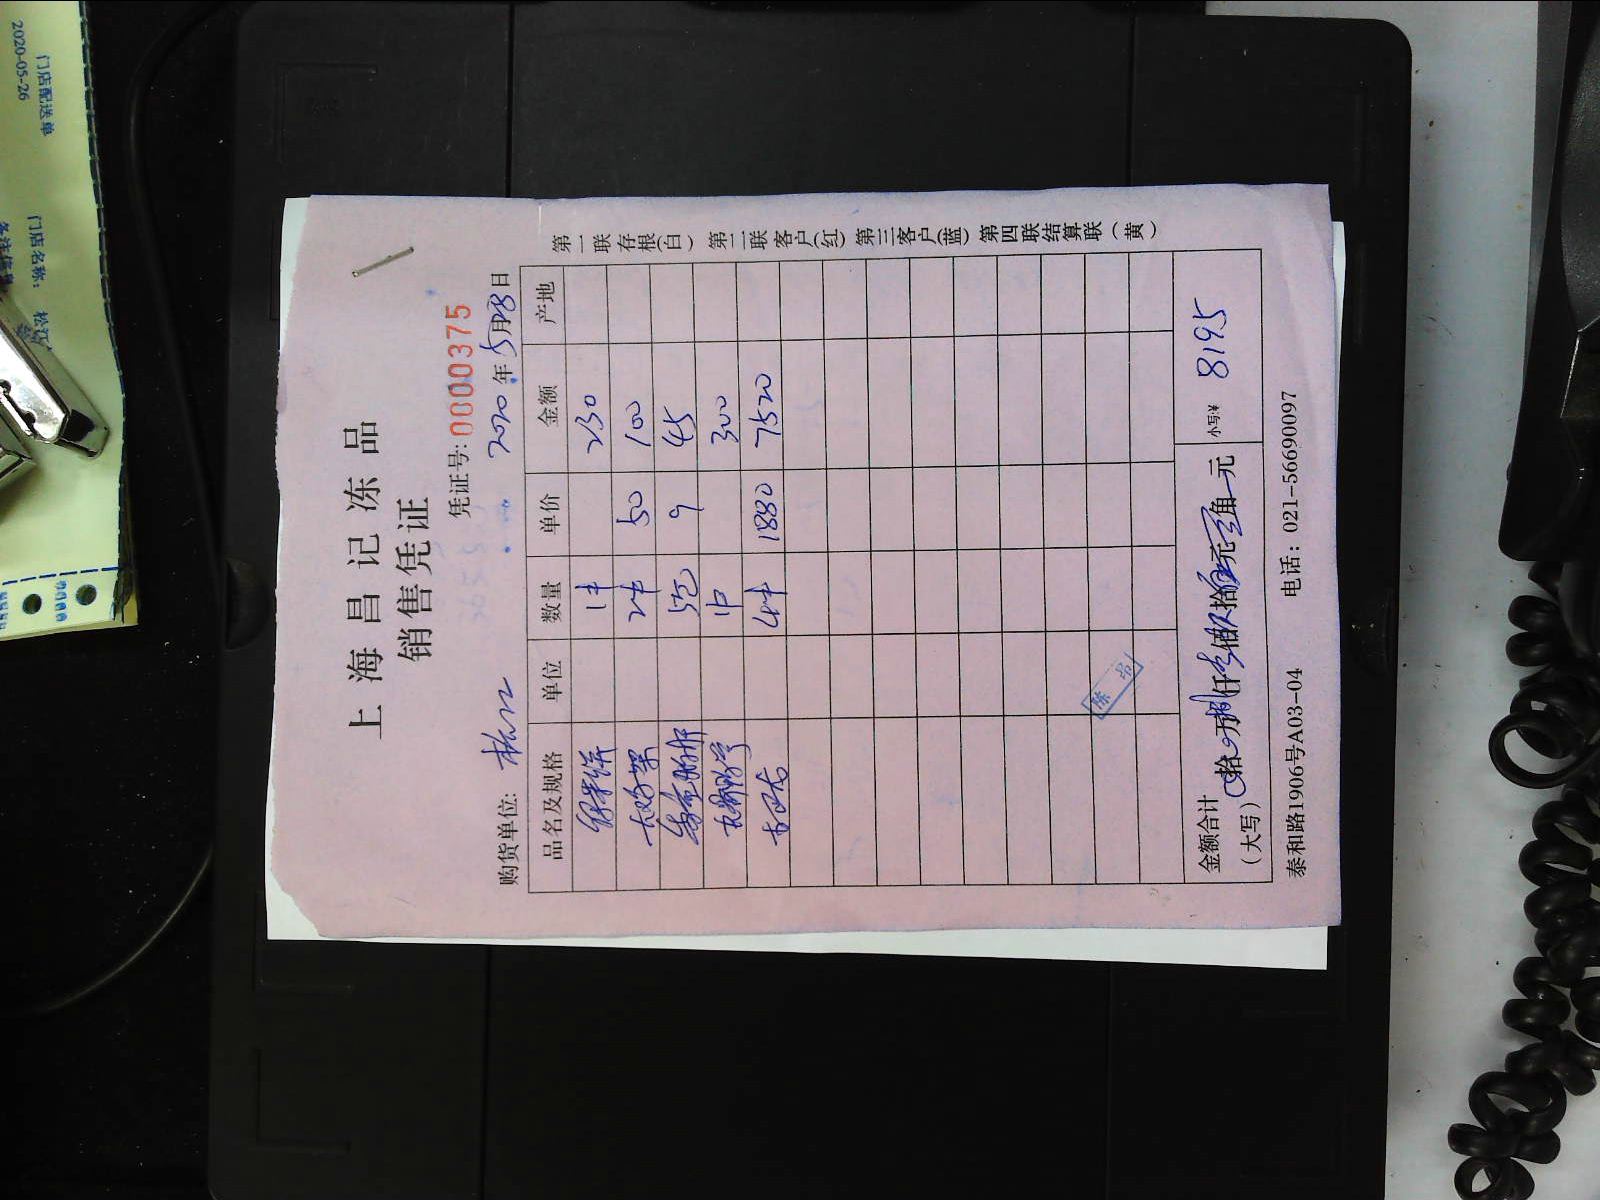 上海昌记冻品
销售凭证
凭证号:0000375
购货单位: 松江 2020年5月28日
品名及规格 单位 数量 单价 金额 产地
1件 230
大鸡架 2件 50 100
5包 9 45
1件 300
4件 1880 7520
金额合计（大写） 拾 万捌仟壹佰玖拾伍元 角 元 小写:¥ 8195
泰和路1906号A03-04 电话：021-56690097
第一联存根(白) 第二联客户(红) 第三客户(蓝) 第四联结算联(黄)
门店配送单
2020-05-26
门店名称: